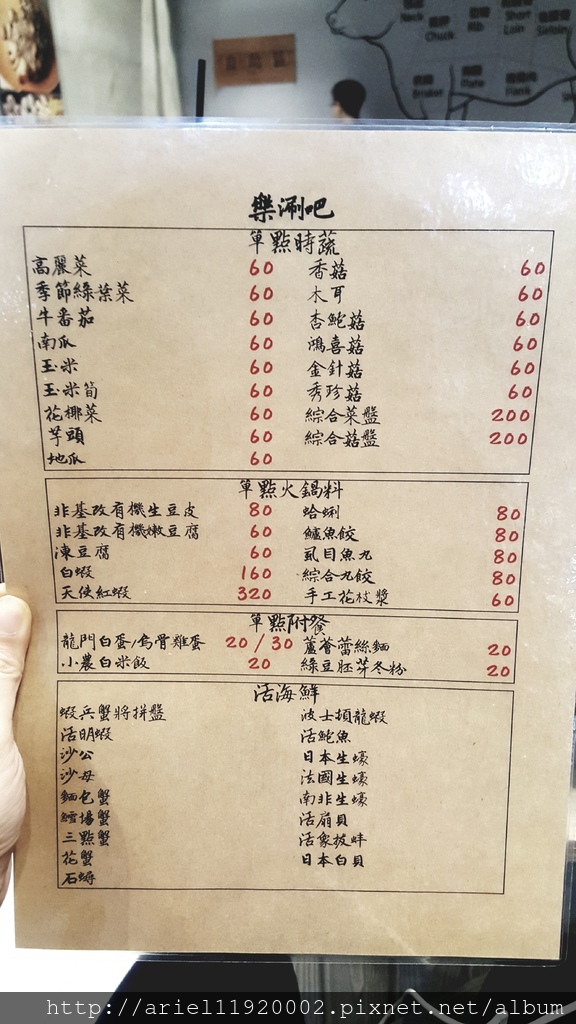 Neck
Chuck
Rib
Short
Loin
Sirloin
Brisket
Plate
Flank
樂涮吧
單點時蔬
高麗菜 60 香菇 60
季節綠葉菜 60 木耳 60
牛番茄 60 杏鮑菇 60
南瓜 60 鴻喜菇 60
玉米 60 金針菇 60
玉米筍 60 秀珍菇 60
花椰菜 60 綜合菜盤 200
芋頭 60 綜合菇盤 200
地瓜 60
單點火鍋料
非基改有機生豆皮 80 蛤蜊 80
非基改有機嫩豆腐 60 鱸魚餃 80
凍豆腐 60 虱目魚丸 80
白蝦 160 綜合丸餃 80
天使紅蝦 320 手工花枝漿 60
單點附餐
龍門白蛋/烏骨雞蛋 20/30 蘆薈蕾絲麵 20
小農白米飯 20 綠豆胚芽冬粉 20
活海鮮
蝦兵蟹將拼盤 波士頓龍蝦
活明蝦 活鮑魚
沙公 日本生蠔
沙母 法國生蠔
麵包蟹 南非生蠔
鱈場蟹 活扇貝
三點蟹 活象拔蚌
花蟹 日本白貝
石蟳
http://ariel11920002.pixnet.net/album